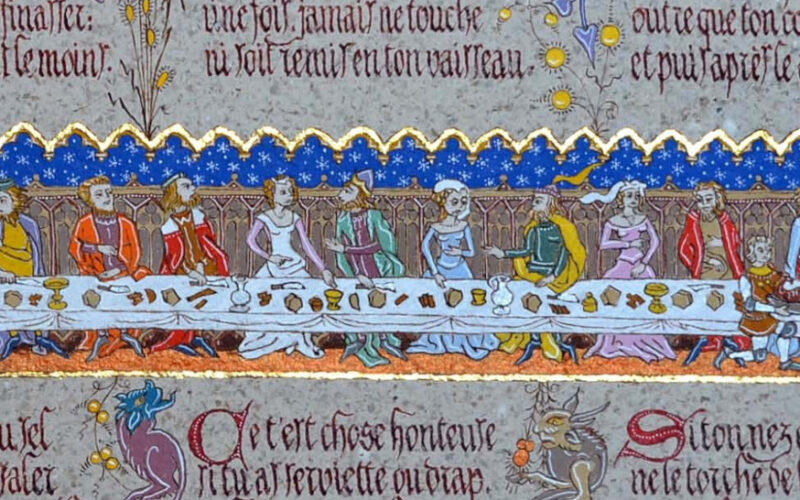 t le moins.
une fois, jamais ne touche
ni soit remis en ton vaisseau.
outre que ton co
et puis apres le
u sel
saler
Ce t'est chose honteuse
si tu as serviette ou drap.
Si ton nez
ne le torche de